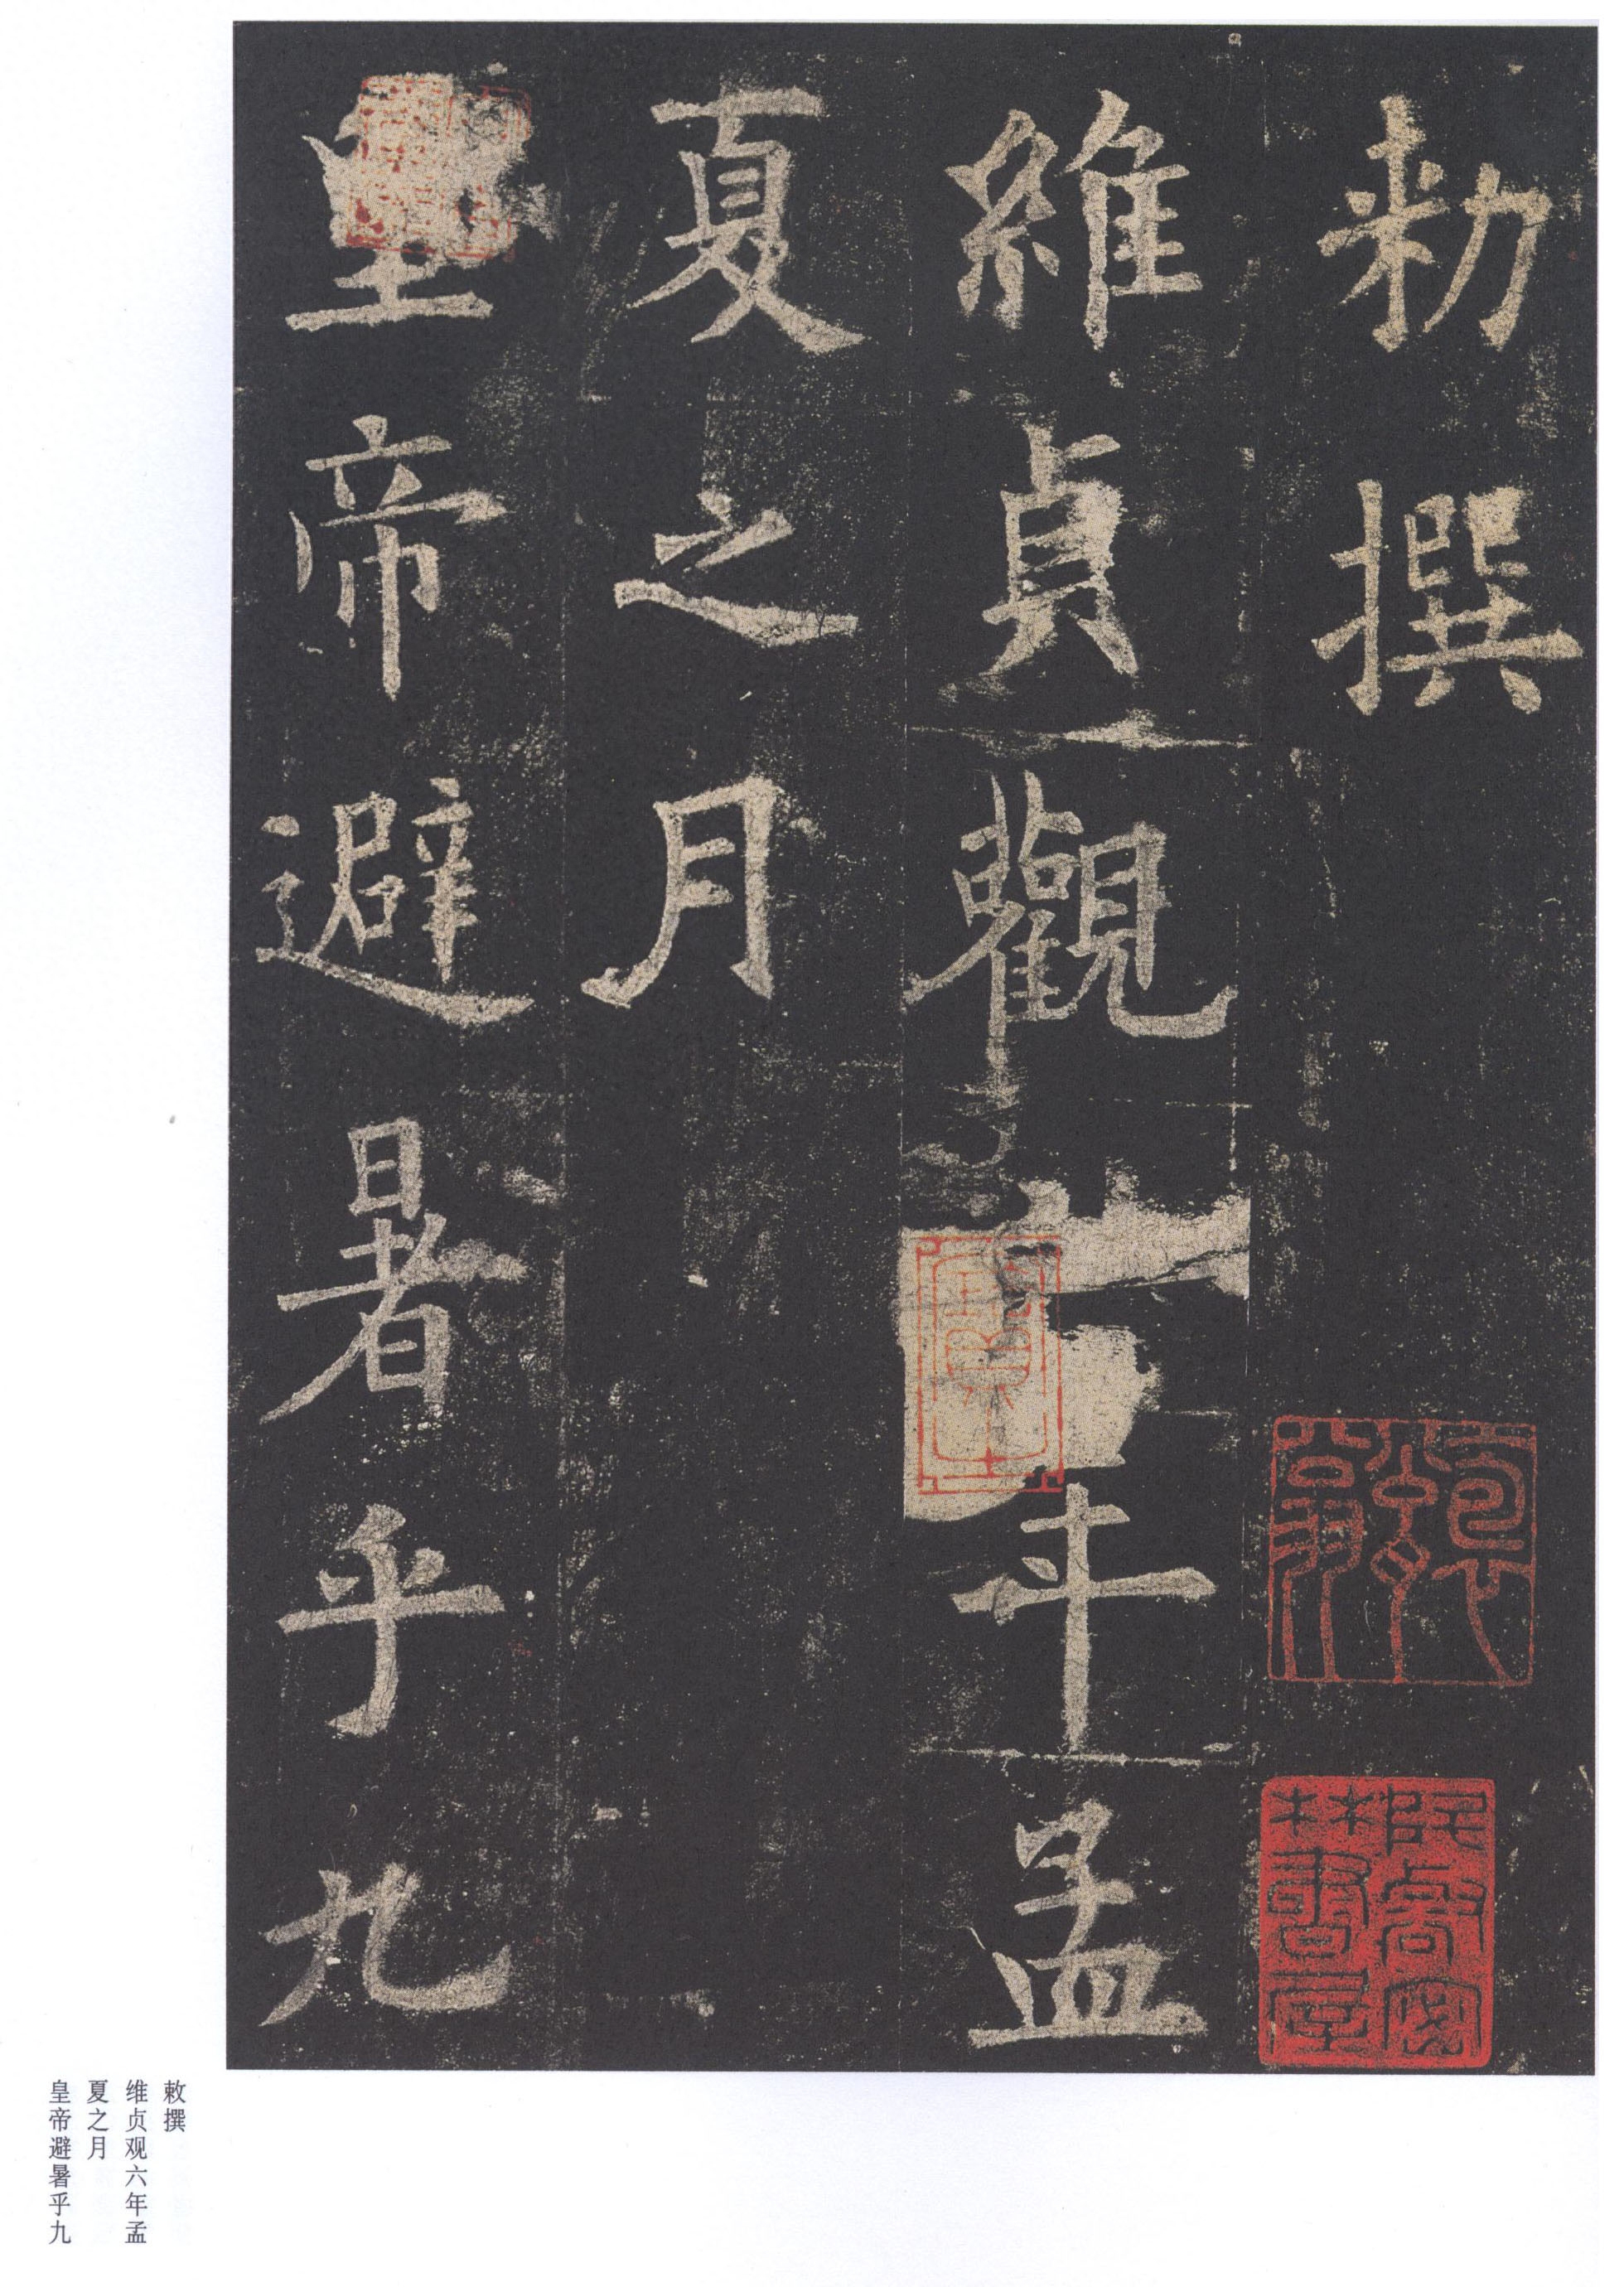 勑撰
維貞觀年孟
夏之月
皇帝避暑乎九
敕撰
维贞观六年孟
夏之月
皇帝避暑乎九